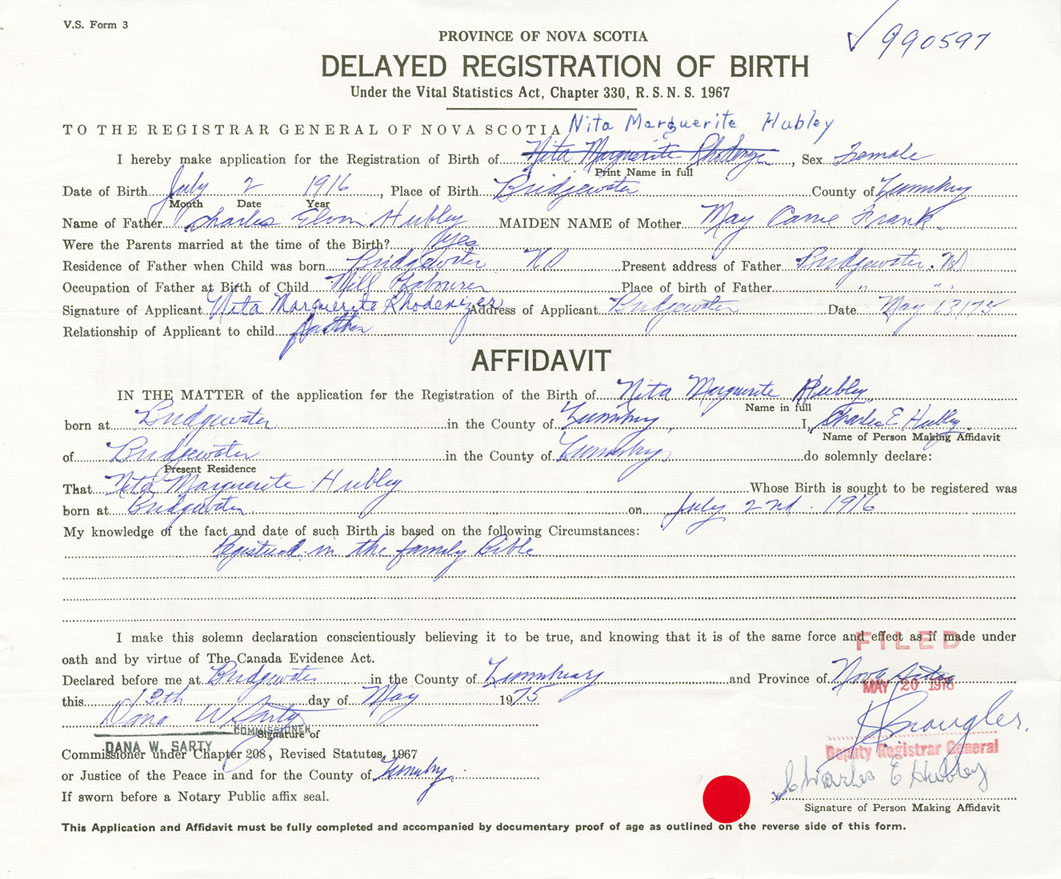 V.S. Form 3
✓ 990597
PROVINCE OF NOVA SCOTIA
DELAYED REGISTRATION OF BIRTH
Under the Vital Statistics Act, Chapter 330, R.S.N.S. 1967
TO THE REGISTRAR GENERAL OF NOVA SCOTIA Nita Marguerite Hubley
I hereby make application for the Registration of Birth of Nita Marguerite , Sex Female
Print Name in full
Date of Birth July 2 1916 , Place of Birth Bridgewater County of
Month Date Year
Name of Father Charles Hubley MAIDEN NAME of Mother May Carrie Frank
Were the Parents married at the time of the Birth? Yes
Residence of Father when Child was born Bridgewater NS Present address of Father Bridgewater. NS
Occupation of Father at Birth of Child Mill Labourer Place of birth of Father " "
Signature of Applicant Nita Marguerite Rhodenizer Address of Applicant Bridgewater Date May 13/75
Relationship of Applicant to child
AFFIDAVIT
IN THE MATTER of the application for the Registration of the Birth of Nita Marguerite Hubley
Name in full
born at Bridgewater in the County of I, Charles E Hubley
Name of Person Making Affidavit
of Bridgewater in the County of do solemnly declare:
Present Residence
That Nita Marguerite Hubley Whose Birth is sought to be registered was
born at Bridgewater on July 2nd. 1916
My knowledge of the fact and date of such Birth is based on the following Circumstances:
Registered in the family Bible
I make this solemn declaration conscientiously believing it to be true, and knowing that it is of the same force and effect as if made under
FILED
oath and by virtue of The Canada Evidence Act.
Declared before me at Bridgewater in the County of and Province of Nova Scotia
this day of May 1975
MAY 20
Dana W Sarty
COMMISSIONER
Signature of
DANA W. SARTY
Commissioner under Chapter 208, Revised Statutes, 1967
Deputy Registrar General
or Justice of the Peace in and for the County of
Charles E Hubley
If sworn before a Notary Public affix seal.
Signature of Person Making Affidavit
This Application and Affidavit must be fully completed and accompanied by documentary proof of age as outlined on the reverse side of this form.